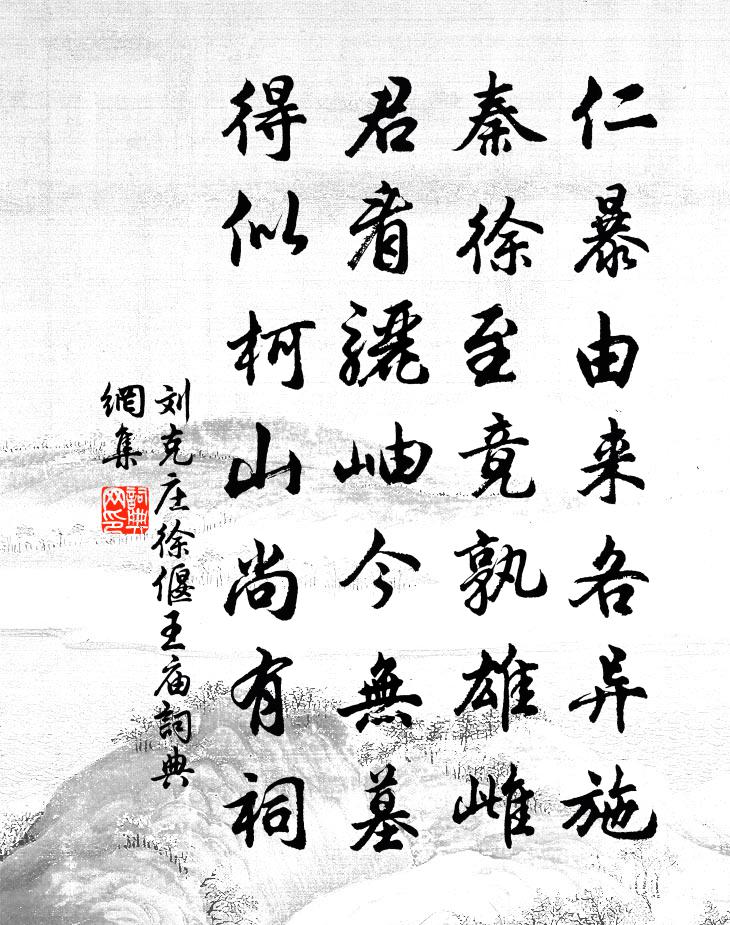 仁暴由来各异施
秦徐至竟孰雄雌
君看驪岫今無墓
得似柯山尚有祠
刘克庄徐偃王庙詞典
網集
詞典
网印